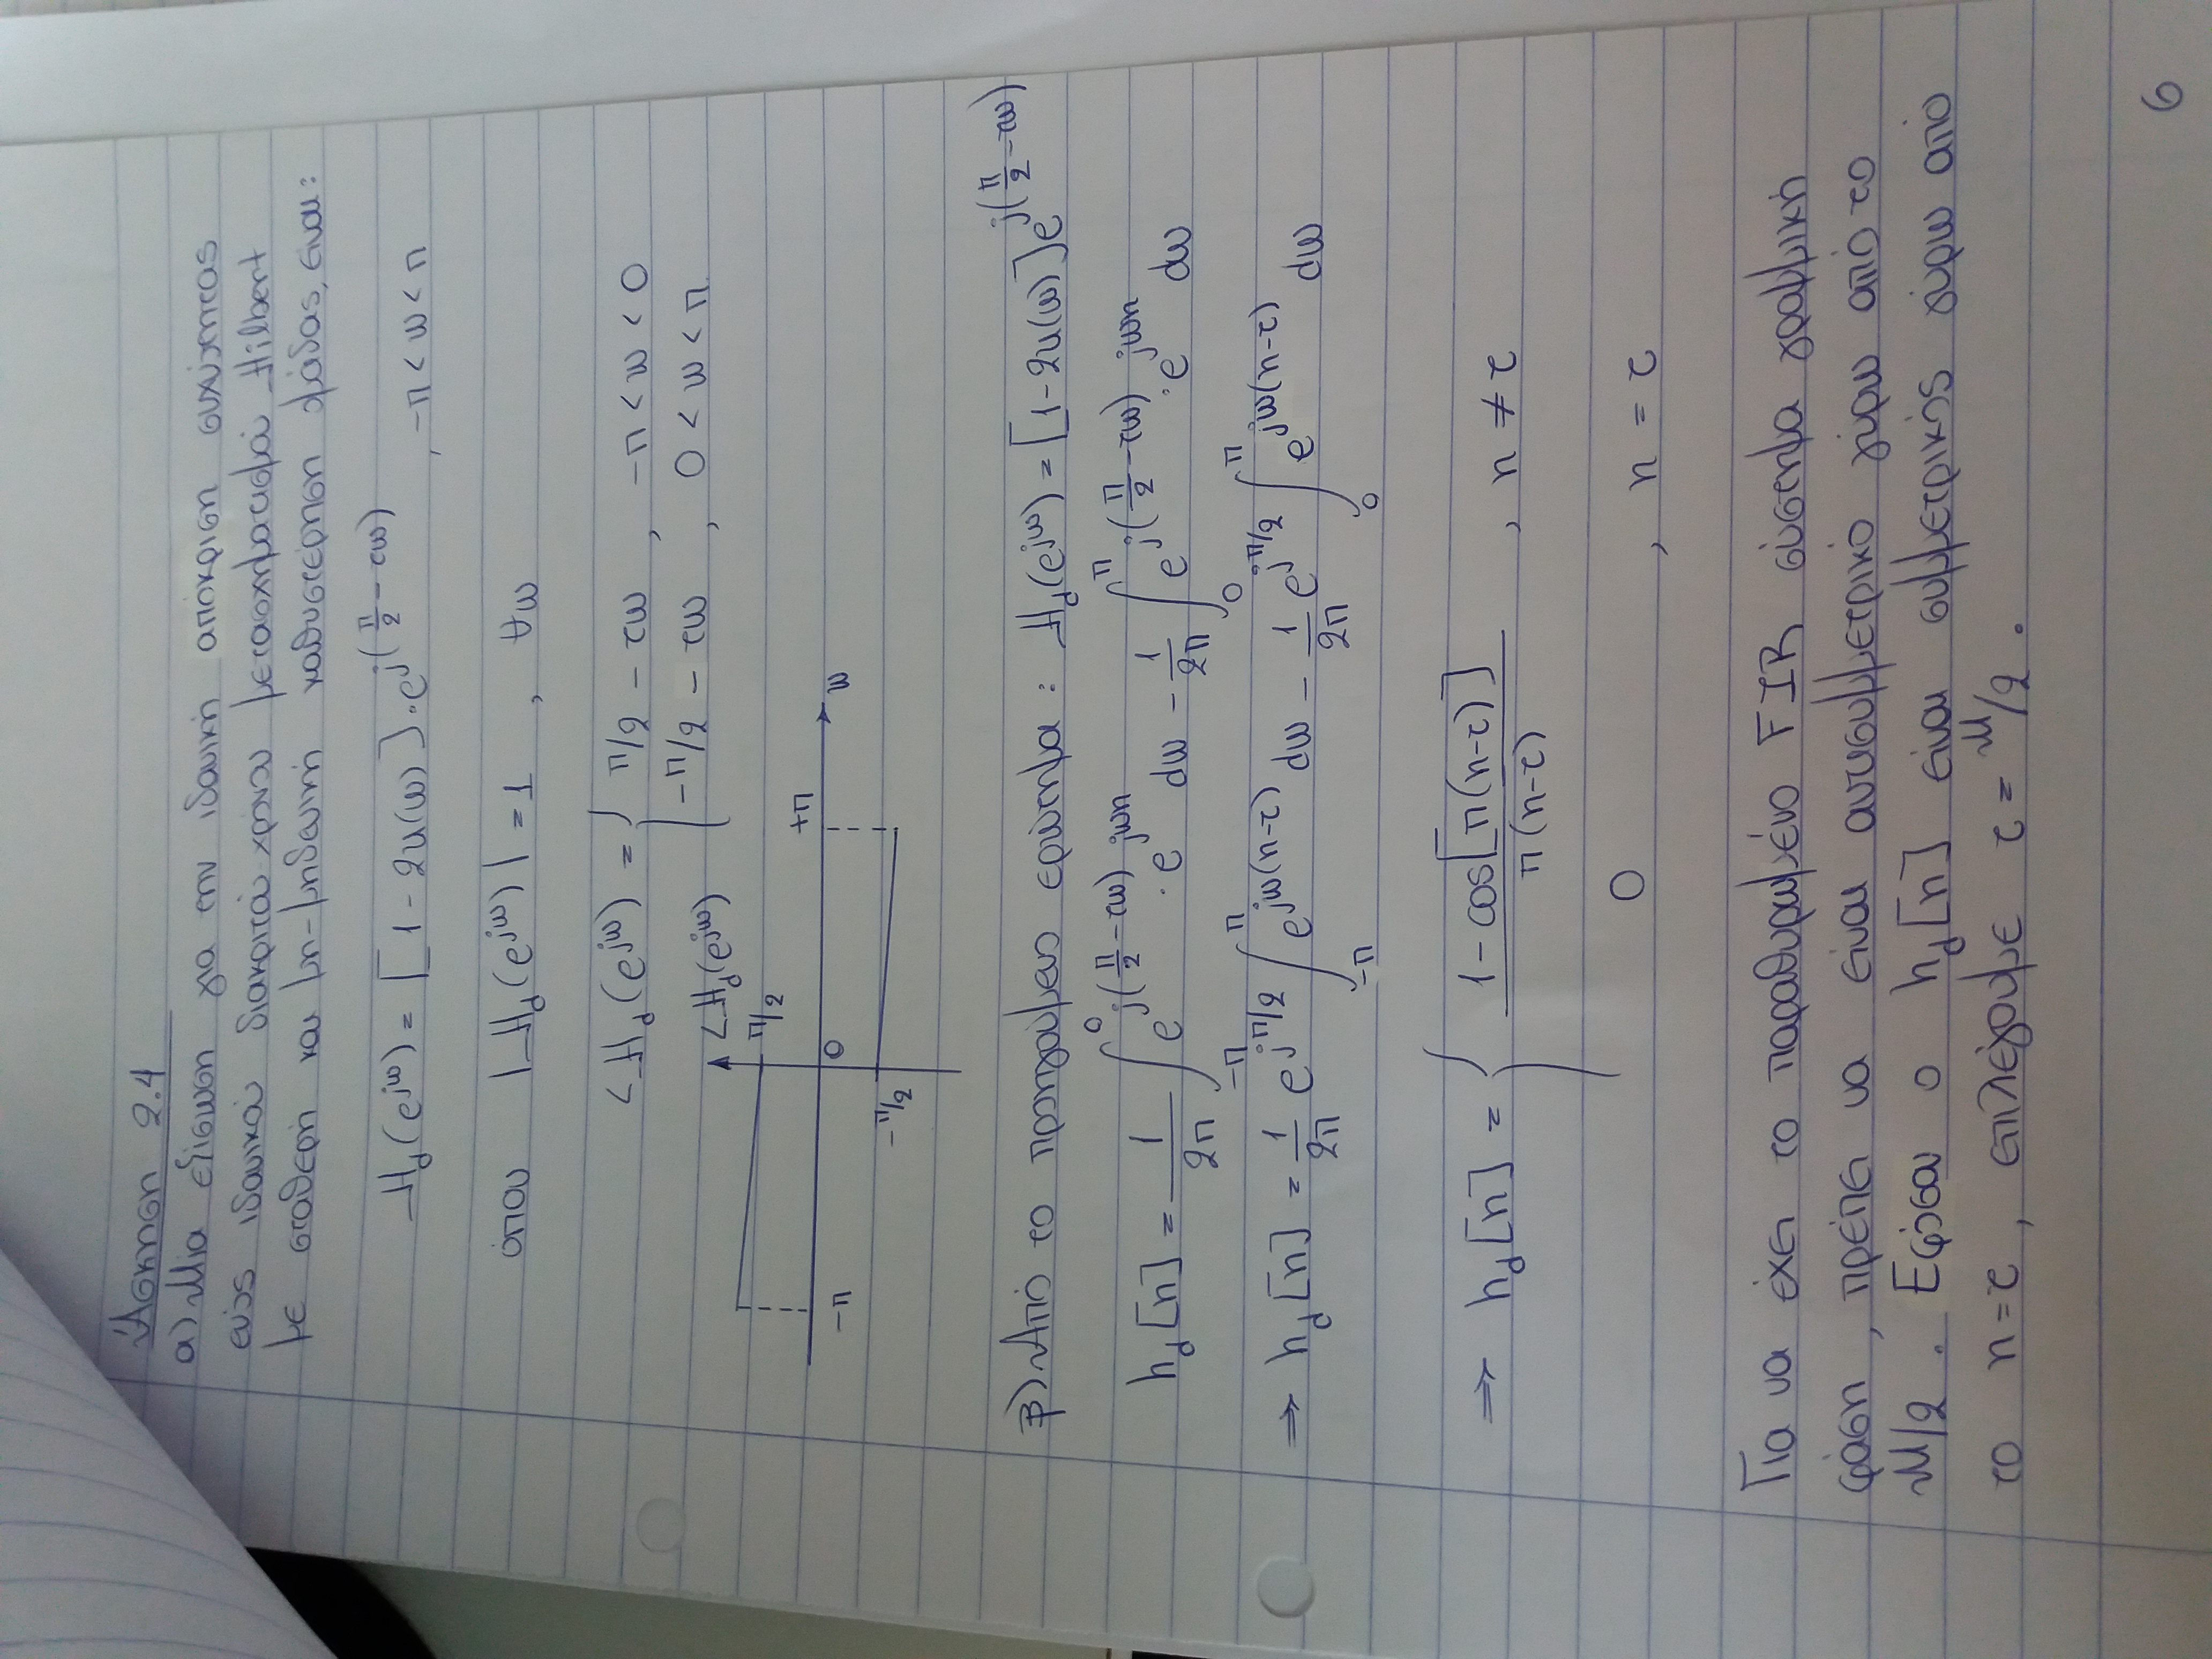 Άσκηση 2.4
α) Μια εξίσωση για την ιδανική απόκριση συχνότητας
ενός ιδανικού διακριτού χρόνου μετασχηματισμού Hilbert
με σταθερή και μη-μηδενική καθυστέρηση ομάδας, είναι:
H_d(e^{jω}) = [1-2u(ω)]·e^{j(π/2 - τω)} , -π < ω < π
όπου |H_d(e^{jω})| = 1 , ∀ω
<H_d(e^{jω}) = { π/2 - τω , -π < ω < 0
-π/2 - τω , 0 < ω < π
<H_d(e^{jω})
π/2
+π
-π 0 ω
-π/2
β) Από το προηγούμενο ερώτημα : H_d(e^{jω}) = [1-2u(ω)]e^{j(π/2 - τω)}
h_d[n] = 1/2π ∫_{-π}^{0} e^{j(π/2 - τω)}·e^{jωn} dω - 1/2π ∫_{0}^{π} e^{j(π/2 - τω)}·e^{jωn} dω
⇒ h_d[n] = 1/2π e^{jπ/2} ∫_{-π}^{π} e^{jω(n-τ)} dω - 1/2π e^{jπ/2} ∫_{0}^{π} e^{jω(n-τ)} dω
⇒ h_d[n] = { (1-cos[π(n-τ)]) / (π(n-τ)) , n ≠ τ
0 , n = τ
Για να έχει το παραθυρωμένο FIR σύστημα γραμμική
φάση, πρέπει να είναι αντισυμμετρικό γύρω από το
M/2. Εφόσον ο h_d[n] είναι συμμετρικός γύρω από
το n=τ, επιλέγουμε τ = M/2.
6